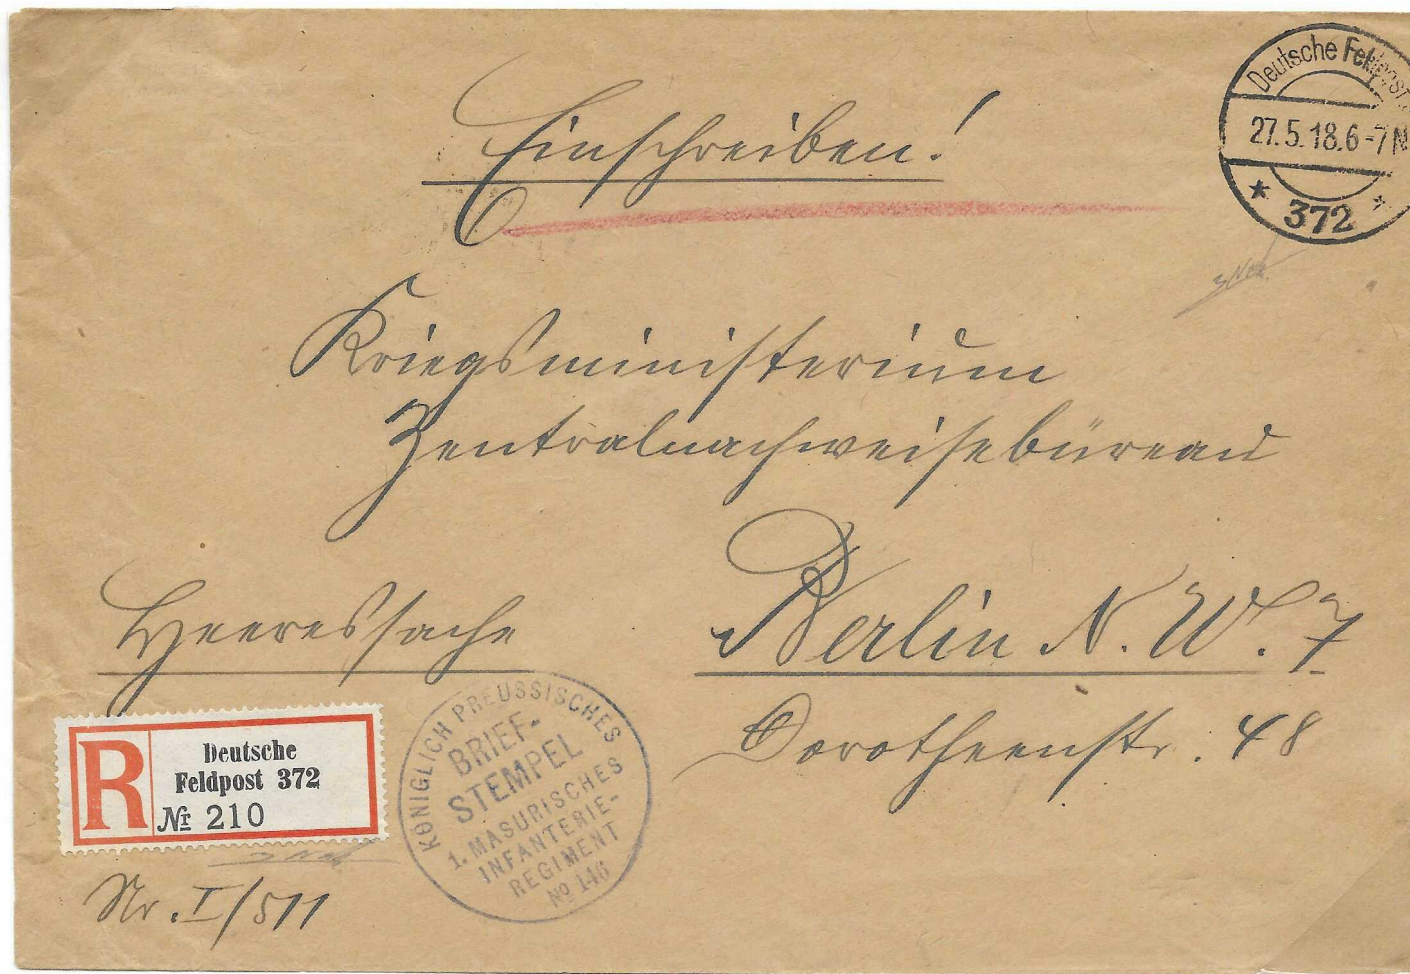 Einschreiben!
Deutsche Feldpost
27.5.18.6-7N
* 372 *
Kriegsministerium
Zentralnachweisebüreau
Heeressache
Berlin N.W.7
Dorotheenstr. 48
R
Deutsche
Feldpost 372
Nr 210
KÖNIGLICH PREUSSISCHES
BRIEF-
STEMPEL
1. MASURISCHES
INFANTERIE-
REGIMENT
No 146
Nr. I/511